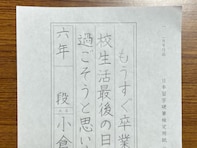 もうすぐ卒業
校生活最後の日
過ごそうと思い
六年 段 小倉